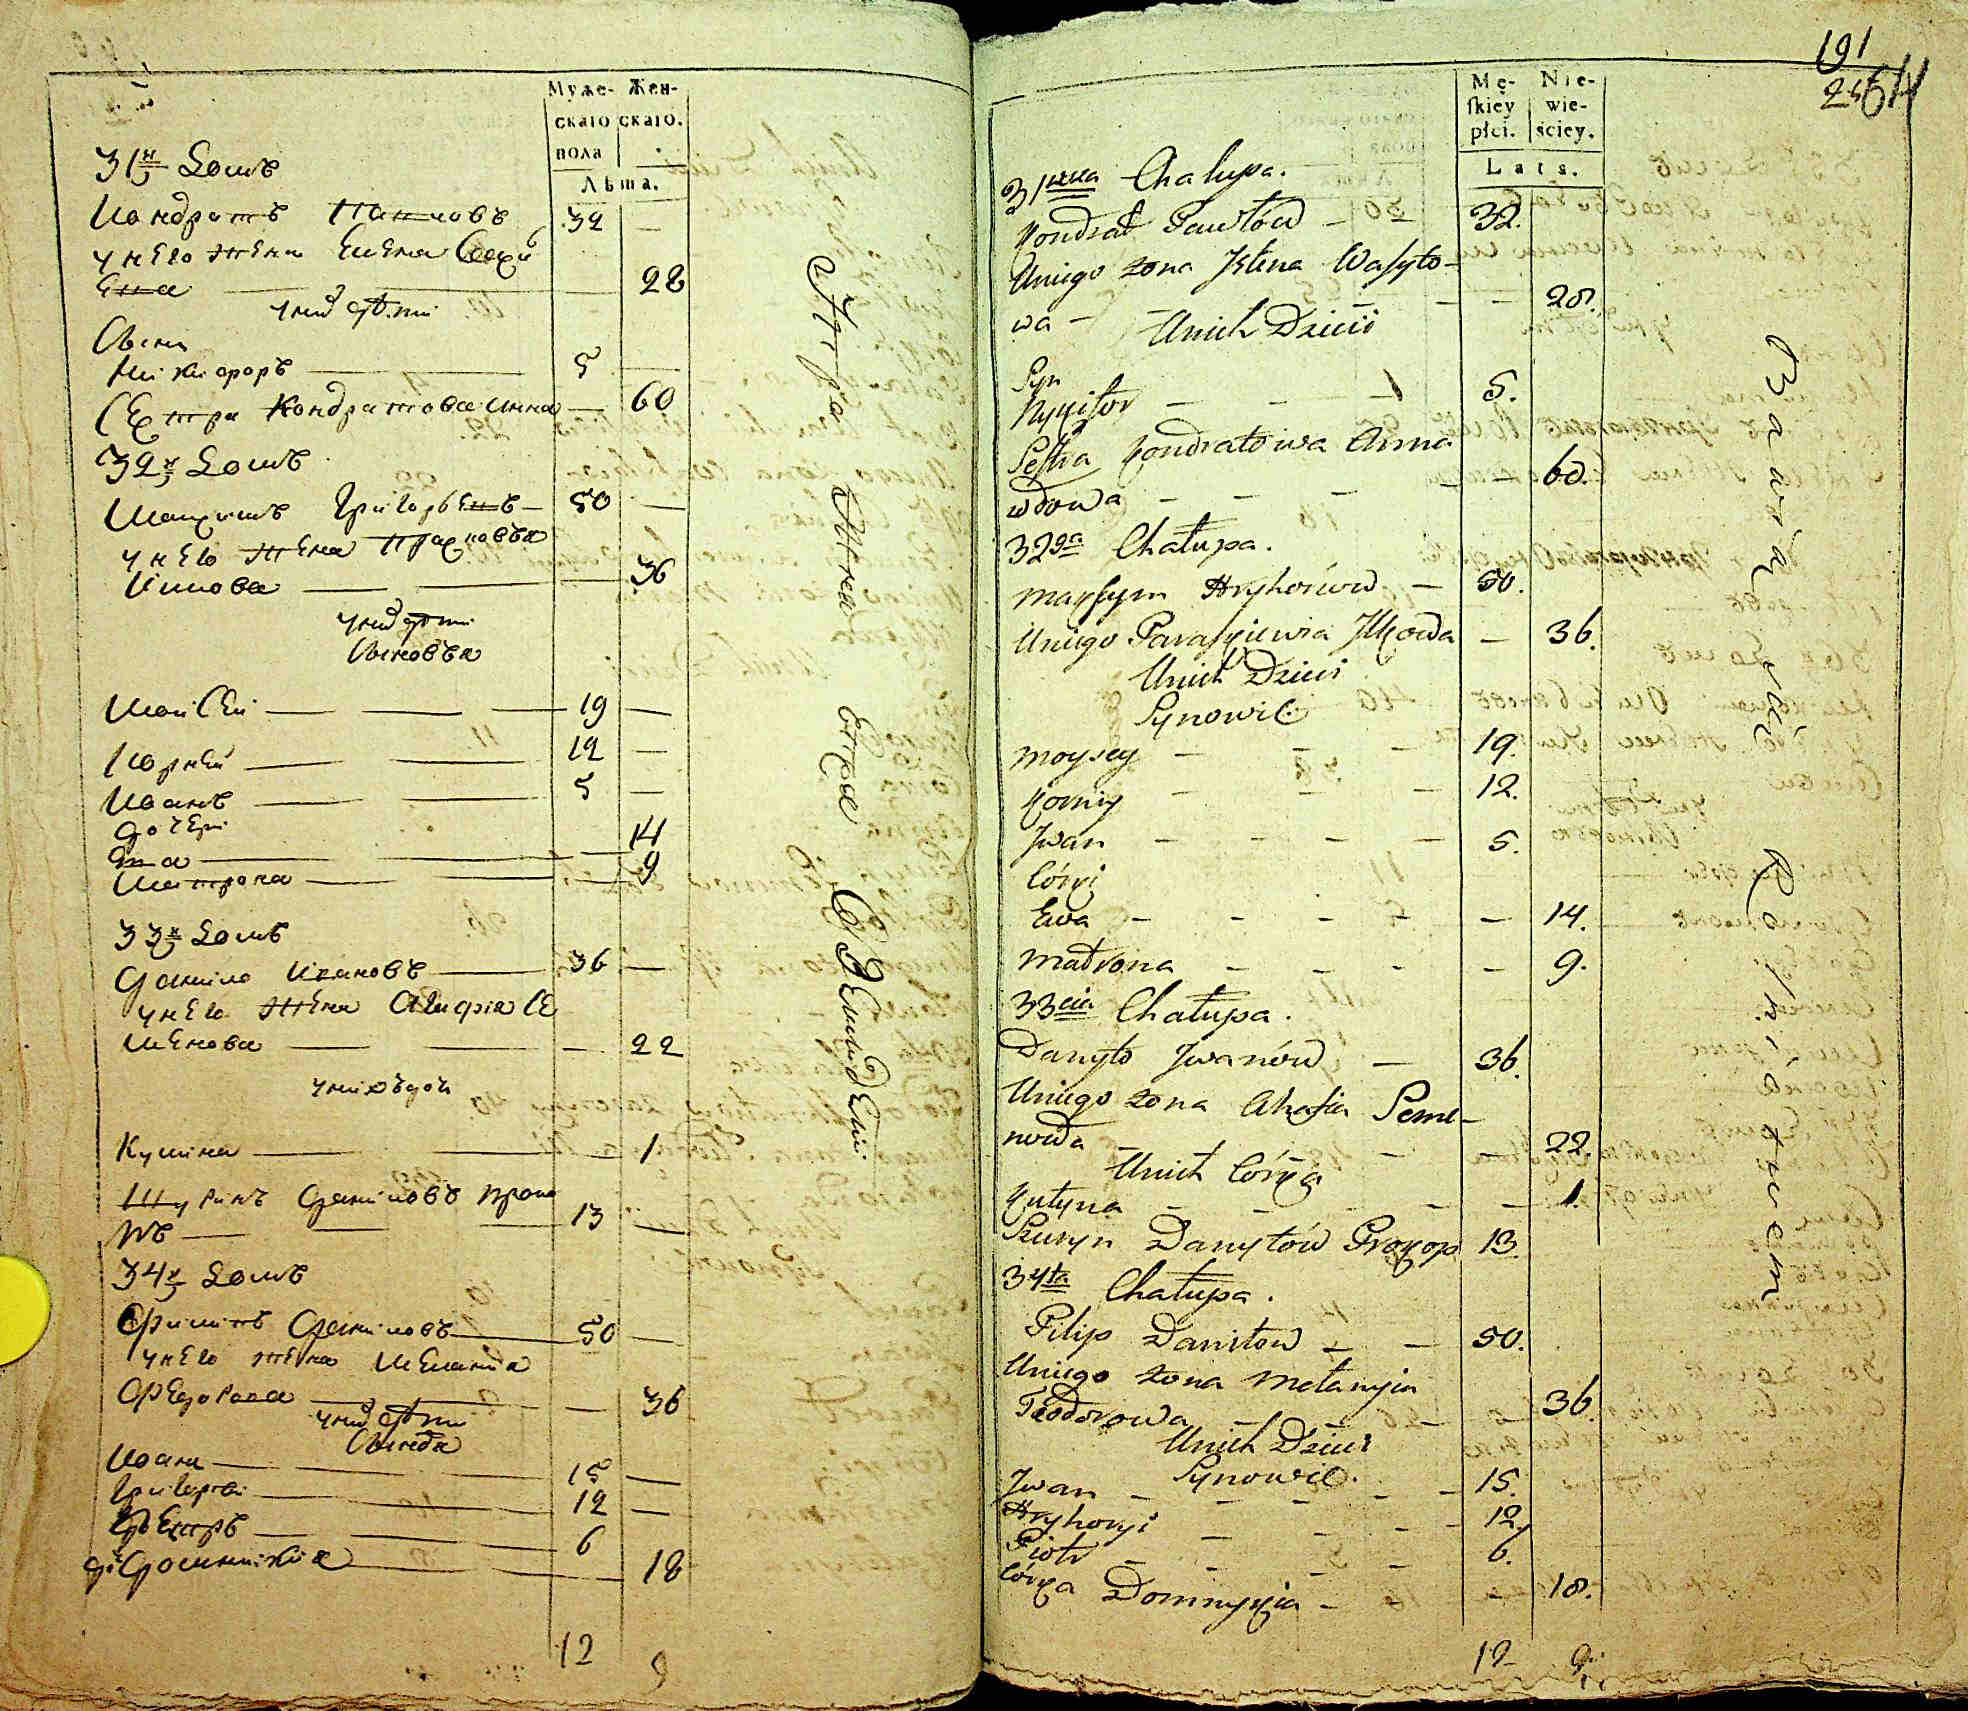 Муже- Жен-
скаго скаго.
пола
Лѣта.
31й Домъ
Кондратъ Павловъ 32 —
у него жена Елена Васи
Ева — 28
у них дѣти
Сынъ
Никифоръ — 5 —
Сестра Кондратова Анна — 60
32й Домъ
Максимъ Григорьевъ — 50 —
у него жена Прасковья
Илкова — 36
у них дѣти
Сыновья
Мойсей — 19 —
Корнѣй — 12 —
Иванъ — 5 —
дочери
Ева — 14
Матрона — 9
33й Домъ
Данило Ивановъ — 36 —
у него жена Агафiя Се
менова — 22
у них дочь
Кулина — 1
Шуринъ Даниловъ Проко
пъ — 13 —
34й Домъ
Филипъ Даниловъ — 50 —
у него жена Меланiя
Федорова — 36
у них дѣти
Сыновья
Иванъ — 15 —
Григорей — 12 —
Петръ — 6
до: Домникiя — 18
12 9
191
264
Mę- Nie-
skiey wie-
płci. ściey.
Lata.
31wsza Chałupa.
Kondrat Pawłów — 32.
Uniego żona Jelena Wasyło-
wa — 28.
Unich Dzieci
Syn
Nykifor — 5.
Sestra Kondratowa Anna
wdowa — 60.
32ga Chałupa.
Maxym Hryhoriow — 50.
Uniego Paraskiewia Jlkowa — 36.
Unich Dzieci
Synowie:
Moysey — 19.
Korniy — 12.
Jwan — 5.
Córki
Ewa — 14.
Madrona — 9.
33cia Chałupa.
Danyło Jwanów — 36.
Uniego żona Ahafia Seme-
nowa — 22.
Unich Córka
Kulyna — 1.
Szuryn Danyłów Prokop 13.
34ta Chałupa.
Filip Daniłow — 50.
Uniego żona Mełanyia
Teodorowa — 36.
Unich Dzieci
Synowie.
Jwan — 15.
Hryhoryi — 12.
Piotr — 6.
Córka Domnykia — 18.
12 9.